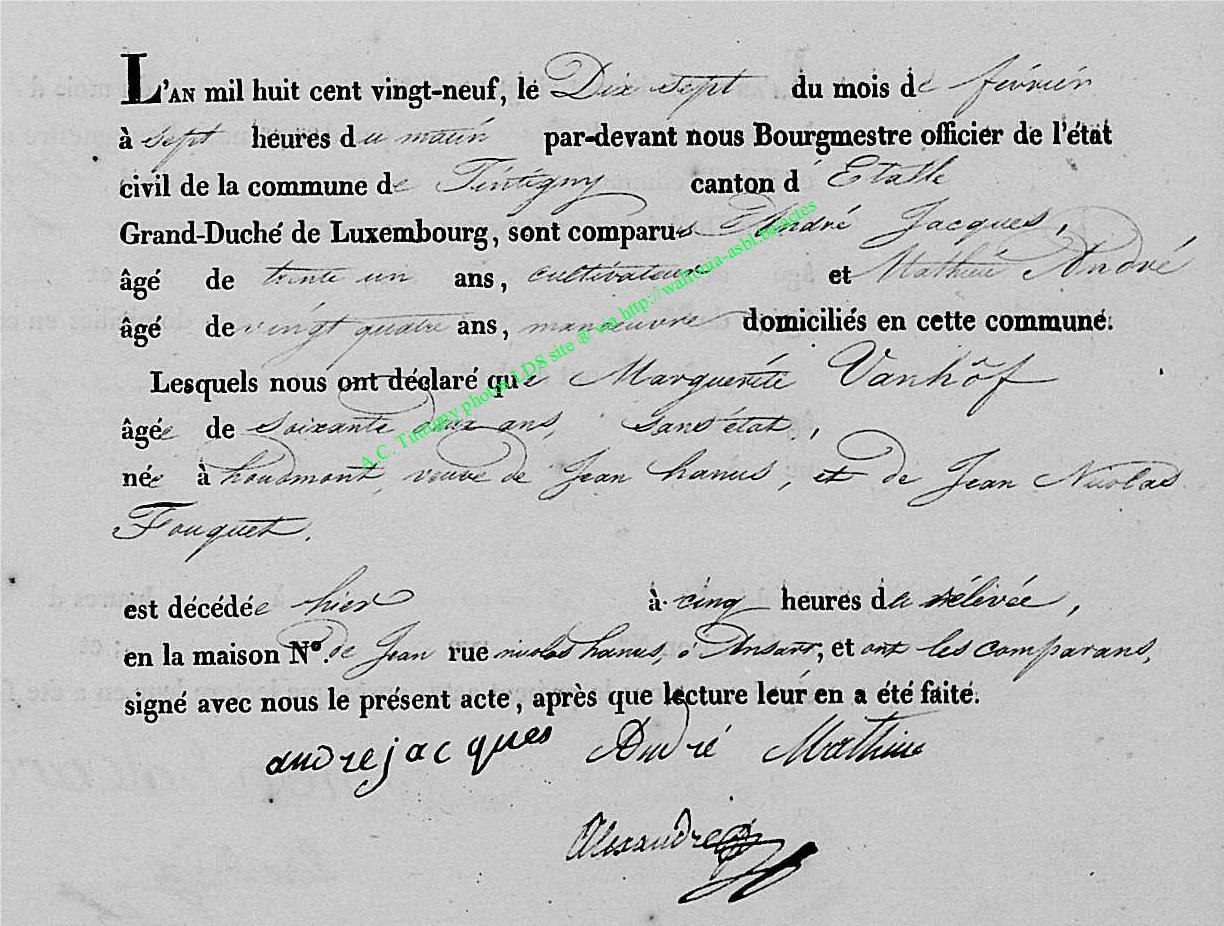 L'AN mil huit cent vingt-neuf, le Dix sept du mois de février
à sept heures du matin par-devant nous Bourgmestre officier de l'état
civil de la commune de Tintigny canton d'Etalle
Grand-Duché de Luxembourg, sont comparus André Jacques,
âgé de trente un ans, cultivateur et Mathieu André
âgé de vingt quatre ans, manœuvre domiciliés en cette commune.
Lesquels nous ont déclaré que Marguerite Vanhôf
âgée de soixante deux ans, sans état,
née à houdmont, veuve de Jean hanus, et de Jean Nicolas
Fouquet.
est décédée hier à cinq heures de rélivée,
en la maison N°. de Jean rue nicolas hanus, à Ansart, et ont les comparans,
signé avec nous le présent acte, après que lecture leur en a été faite.
andrejacques André Mathieu
Alexandre
A.C. Tintigny photos LDS site ® via http://wallonia-asbl.be/actes